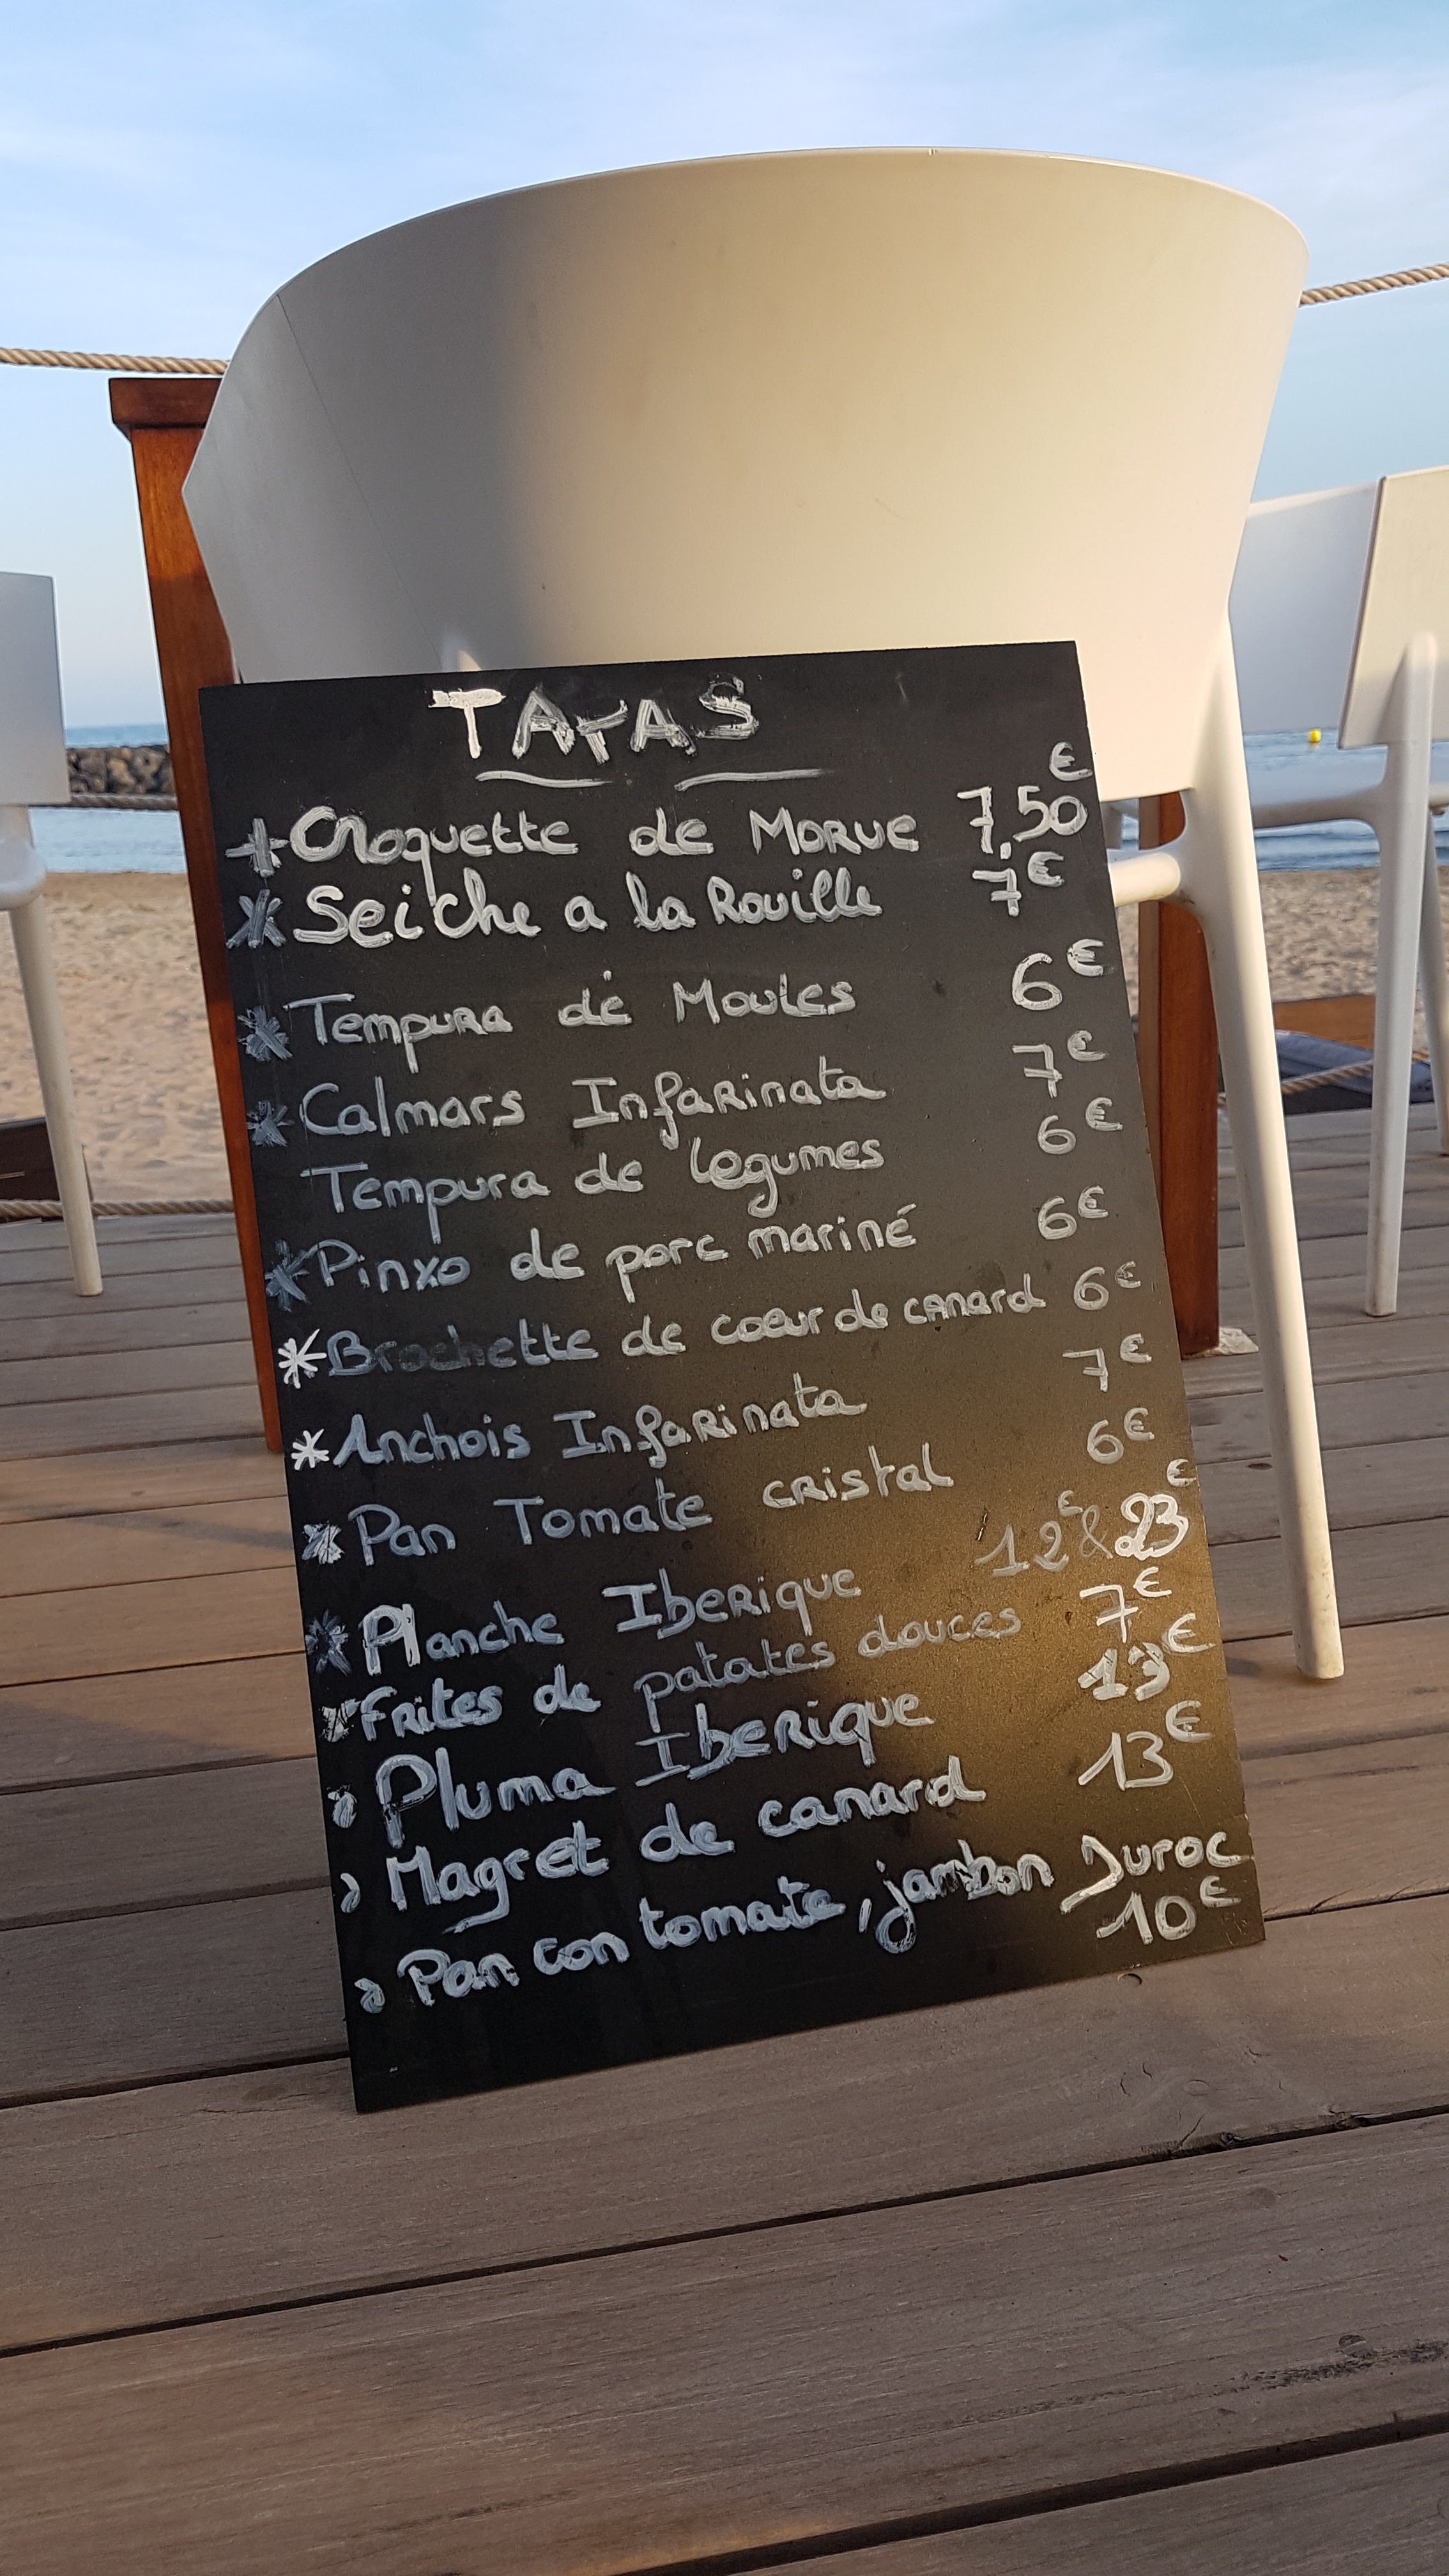 TAPAS
* Croquette de MORUE 7,50 €
* Seiche a la Rouille 7€
* Tempura de Moules 6€
* Calmars Infarinata 7€
Tempura de legumes 6€
* Pinxo de porc mariné 6€
* Brochette de coeur de canard 6€
* Anchois Infarinata 7€
* Pan Tomate cristal 6€
* Planche Iberique 12€ & 23€
* Frites de patates douces 7€
* Pluma Iberique 13€
* Magret de canard 13€
* Pan con tomate, jambon Duroc
10€